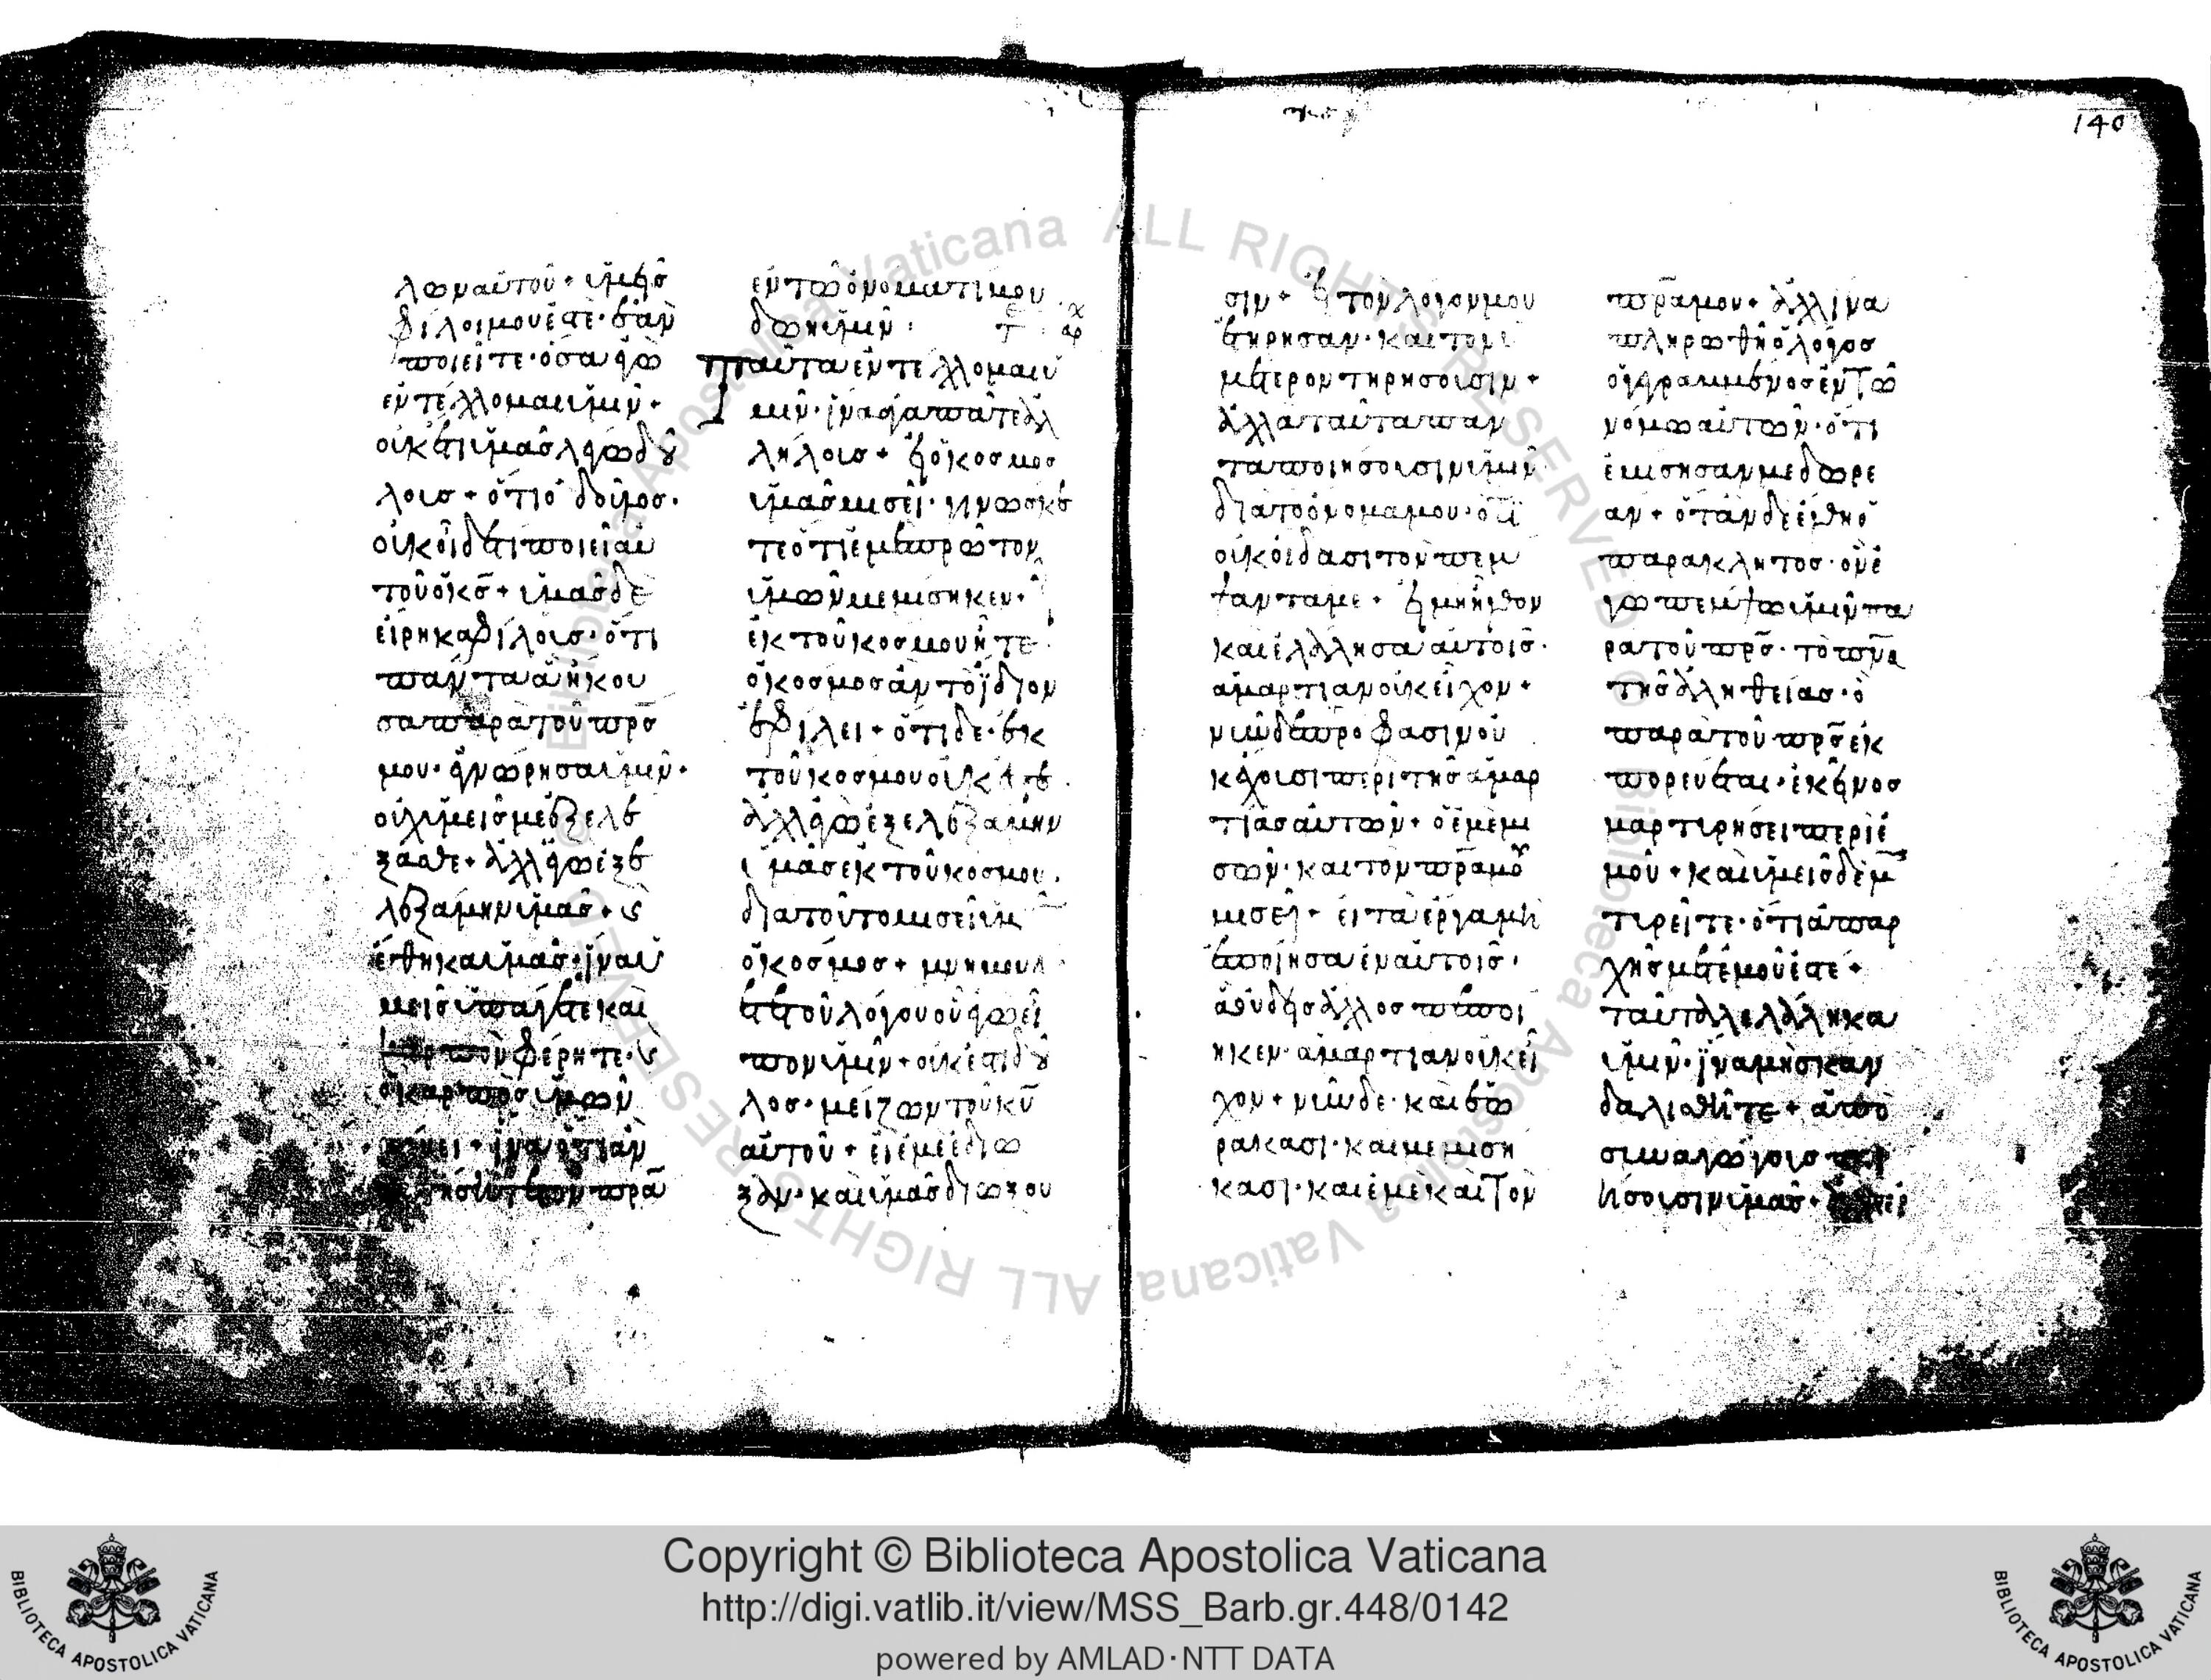 140
λων αὐτοῦ + ὑμεῖς
φίλοι μου ἐστὲ· ἐὰν
ποιεῖτε· ὅσα ἐγὼ
ἐντέλλομαι ὑμῖν·
οὐκέτι ὑμᾶς λέγω δού
λοις + ὅτι ὁ δοῦλος·
οὐκ οἶδεν τί ποιεῖ αὐ
τοῦ ὁ κς + ὑμᾶς δὲ
εἴρηκα φίλοις· ὅτι
πάντα ἃ ἤκου
σα παρὰ τοῦ πρς
μου· ἐγνώρησα ὑμῖν·
οὐχ ὑμεῖς με ἐξελέ
ξασθε + ἀλλ ἐγὼ ἐξε
λεξάμην ὑμᾶς + καὶ
ἔθηκα ὑμᾶς· ἵνα ὑ
μεῖς ὑπάγετε καὶ
καρπὸν φέρητε· καὶ
ὁ καρπὸς ὑμῶν
μένει + ἵνα ὅτι ἂν
τὸν πρα
ἐν τῷ ὀνόματί μου
δώη ὑμῖν :
ταῦτα ἐντέλλομαι ὑ
μῖν· ἵνα ἀγαπᾶτε ἀλ
λήλοις + εἰ ὁ κόσμος
ὑμᾶς μισεῖ· γινώσκε
τε ὅτι ἐμὲ πρῶτον
ὑμῶν μεμίσηκεν +
ἐκ τοῦ κόσμου ἦτε
ὁ κόσμος ἂν τὸ ἴδιον
ἐφίλει + ὅτι δὲ· ἐκ
τοῦ κόσμου οὐκ ἐστὲ·
ἀλλ ἐγὼ ἐξελεξάμην
ὑμᾶς ἐκ τοῦ κόσμου·
διὰ τοῦτο μισεῖ ὑμᾶς
ὁ κόσμος + μνημονεύ
ετε τοῦ λόγου οὗ ἐγὼ εἶ
πον ὑμῖν + οὐκ ἔστι δοῦ
λος· μείζων τοῦ κυ
αὐτοῦ + εἰ ἐμὲ ἐδίω
ξαν· καὶ ὑμᾶς διώξου
σιν + εἰ τὸν λόγον μου
ἐτήρησαν· καὶ τὸν ὑ
μέτερον τηρήσουσιν +
ἀλλὰ ταῦτα πάν
τα ποιήσουσιν ὑμῖν
διὰ τὸ ὄνομά μου· ὅτι
οὐκ οἴδασι τὸν πέμ
ψαντά με + εἰ μὴ ἦλθον
καὶ ἐλάλησα αὐτοῖς·
ἁμαρτίαν οὐκ εἶχον +
νῦν δὲ πρόφασιν οὐ
κ ἔχουσι περὶ τῆς ἁμαρ
τίας αὐτῶν + ὁ ἐμὲ μι
σῶν· καὶ τὸν πρα μου
μισεῖ + εἰ τὰ ἔργα μὴ
ἐποίησα ἐν αὐτοῖς·
ἃ οὐδεὶς ἄλλος πεποί
ηκεν· ἁμαρτίαν οὐκ εἶ
χον + νῦν δὲ· καὶ ἑω
ράκασι· καὶ μεμιση
κασι· καὶ ἐμὲ καὶ τὸν
πρα μου + ἀλλ ἵνα
πληρωθῆ ὁ λόγος
ὁ γεγραμμένος ἐν τῷ
νόμω αὐτῶν· ὅτι
ἐμίσησάν με δωρε
αν + ὅταν δὲ ἔλθη ὁ
παράκλητος· ὃν ἐ
γὼ πέμψω ὑμῖν πα
ρὰ τοῦ πρς· τὸ πνα
τῆς ἀληθείας· ὃ
παρὰ τοῦ πρς ἐκ
πορεύεται· ἐκεῖνος
μαρτυρήσει περὶ ἐ
μοῦ + καὶ ὑμεῖς δὲ μαρ
τυρεῖτε· ὅτι ἀπαρ
χῆς μετ ἐμοῦ ἐστέ +
ταῦτα λελάληκα
ὑμῖν· ἵνα μὴ σκαν
δαλισθῆτε + ἀπο
συναγώγους ποι
ήσουσιν ὑμᾶς +
Copyright © Biblioteca Apostolica Vaticana
http://digi.vatlib.it/view/MSS_Barb.gr.448/0142
powered by AMLAD·NTT DATA
BIBLIOTECA APOSTOLICA VATICANA
BIBLIOTECA APOSTOLICA VATICANA
Biblioteca Apostolica Vaticana ALL RIGHTS RESERVED ©
Biblioteca Apostolica Vaticana ALL RIGHTS RESERVED ©